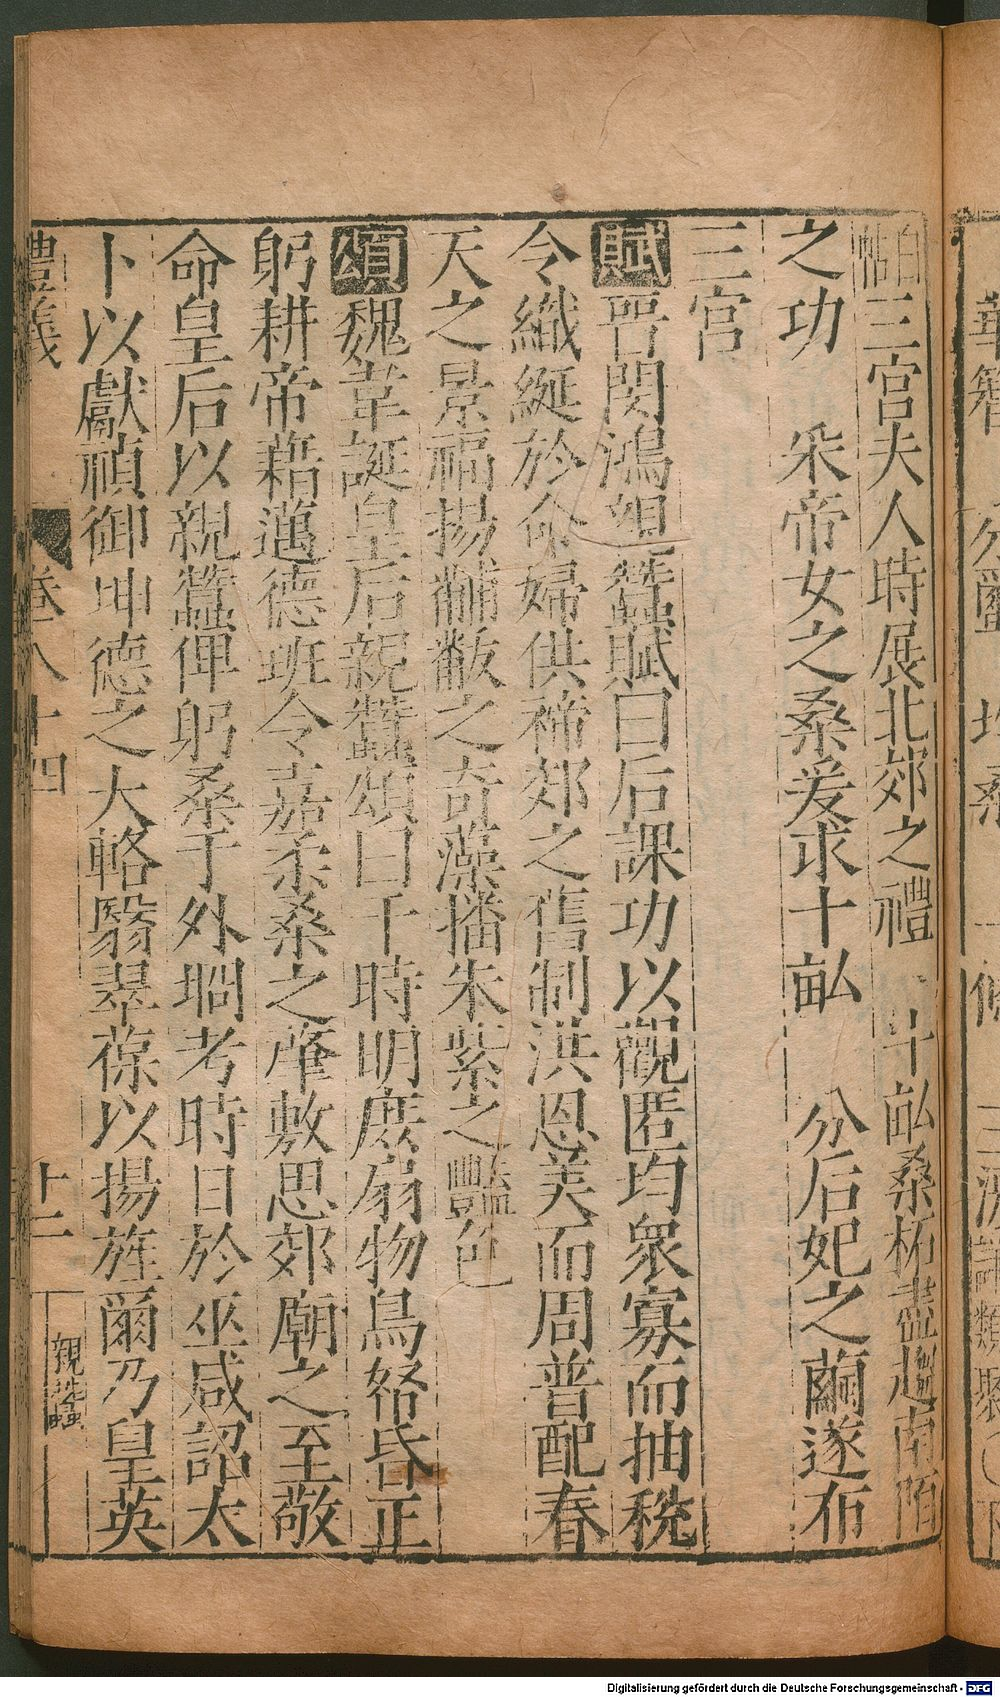 白帖三宮夫人時展北郊之禮 斗畝桑柘盡趨南陌
之功 采帝女之桑爰求十畝 分后妃之繭遂布
三宮
賦晉閔鴻親蠶賦曰后課功以觀匡均衆寡而抽稅
令織綖於命婦供禘郊之舊制洪恩美而周普配春
天之景福揚黼黻之奇藻播朱紫之豔色
頌魏韋誕皇后親蠶頌曰于時明庶扇物鳥帑昏正
躬耕帝藉邁德班令嘉柔桑之肇敷思郊廟之至敬
命皇后以親蠶俾躬桑于外坰考時日於巫咸詔太
卜以獻禎御坤德之大輅翳翠葆以揚旌爾乃皇英
禮義 卷八十四 十二 親蠶
分繭